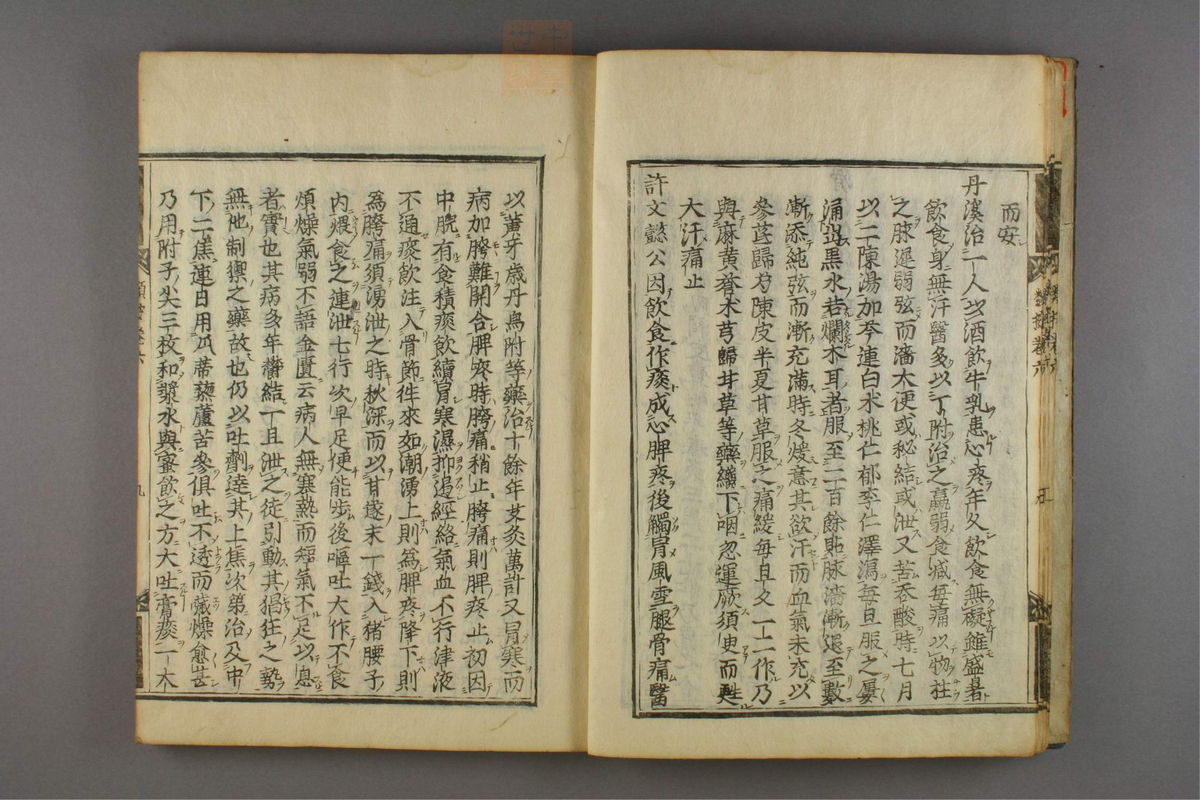 而安
丹溪治一人以酒飲牛乳患心疼年久飲食無礙雖盛暑
飲食身無汗醫多以丁附治之羸弱食減每痛以物拄
之脉遲弱弦而濇大便或秘結或泄又苦吞酸時七月
以二陳湯加芩連白朮桃仁郁李仁澤瀉每旦服之屢
涌出黑水若爛木耳者服至二百餘貼脉濇漸退至數
漸添純弦而漸充滿時冬煖意其欲汗而血氣未充以
參茋歸芍陳皮半夏甘草服之痛緩每旦夕一二作乃
與麻黄蒼朮芎歸甘草等藥纔下咽忽運厥須臾而甦
大汗痛止
許文懿公因飲食作痰成心脾疼後觸冒風雪腿骨痛醫
以黄牙歳丹烏附等藥治十餘年艾灸萬計又冒寒而
病加胯難開合脾疼時胯痛稍止胯痛則脾疼止初因
中脘有食積痰飲續冒寒濕抑遏經絡氣血不行津液
不通痰飲注入骨節徃來如潮湧上則為脾疼降下則
為胯痛須湧泄之時秋深而以甘遂末一錢入猪腰子
内煨食之連泄七行次早足便能歩後嘔吐大作不食
煩燥氣弱不語金匱云病人無寒熱而短氣不足以息
者實也其病多年鬱結一旦泄之徒引動其猖狂之勢
無他制禦之藥故也仍以吐劑達其上焦次第治及中
下二焦連日用瓜蒂藜蘆苦參俱吐不透而噦燥愈甚
乃用附子尖三枚和漿水與蜜飲之方大吐膏痰一大
類按卷六
九